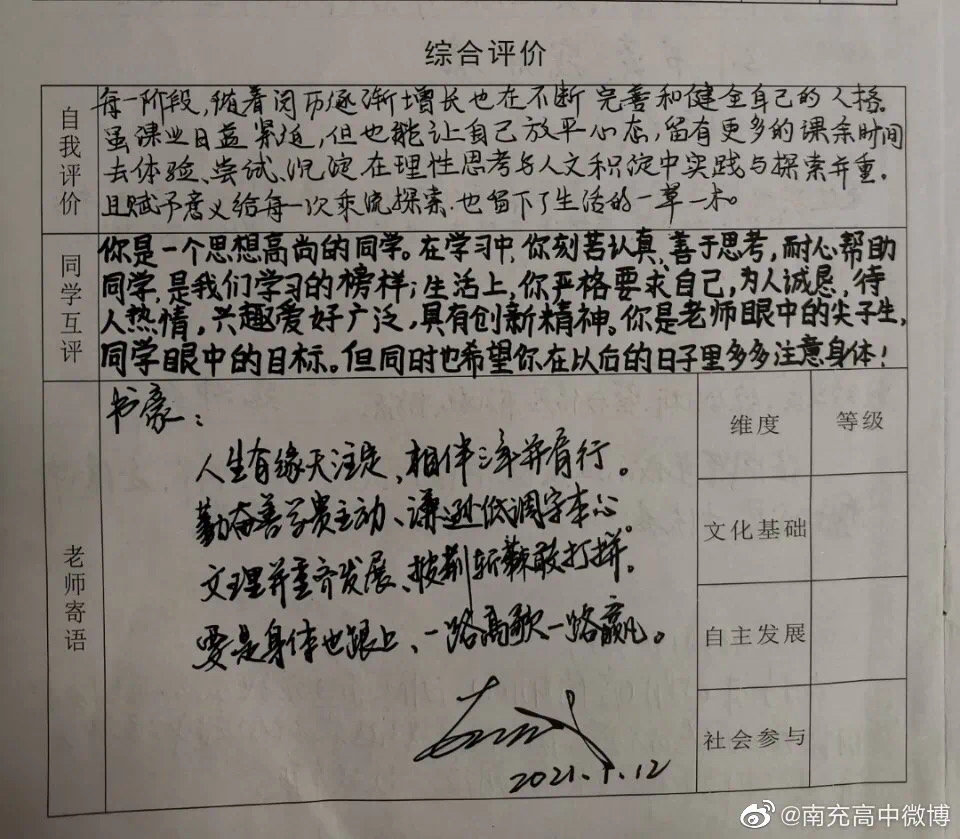 综合评价
自我评价
每一阶段，随着阅历逐渐增长也在不断完善和健全自己的人格。
虽课业日益紧迫，但也能让自己放平心态，留有更多的课余时间
去体验、尝试、沉淀在理性思考与人文积淀中实践与探索并重。
且赋予意义给每一次乘流探索，也留下了生活的一草一木。
同学互评
你是一个思想高尚的同学。在学习中，你刻苦认真，善于思考，耐心帮助
同学，是我们学习的榜样；生活上，你严格要求自己，为人诚恳，待
人热情，兴趣爱好广泛，具有创新精神。你是老师眼中的尖子生，
同学眼中的目标。但同时也希望你在以后的日子里多多注意身体！
老师寄语
书豪：
人生有缘天注定、相伴三年并肩行。
勤奋善学贵主动、谦逊低调守本心。
文理并重齐发展、披荆斩棘敢打拼。
要是身体也跟上、一路高歌一路赢。
2021.1.12
维度 等级
文化基础
自主发展
社会参与
@南充高中微博